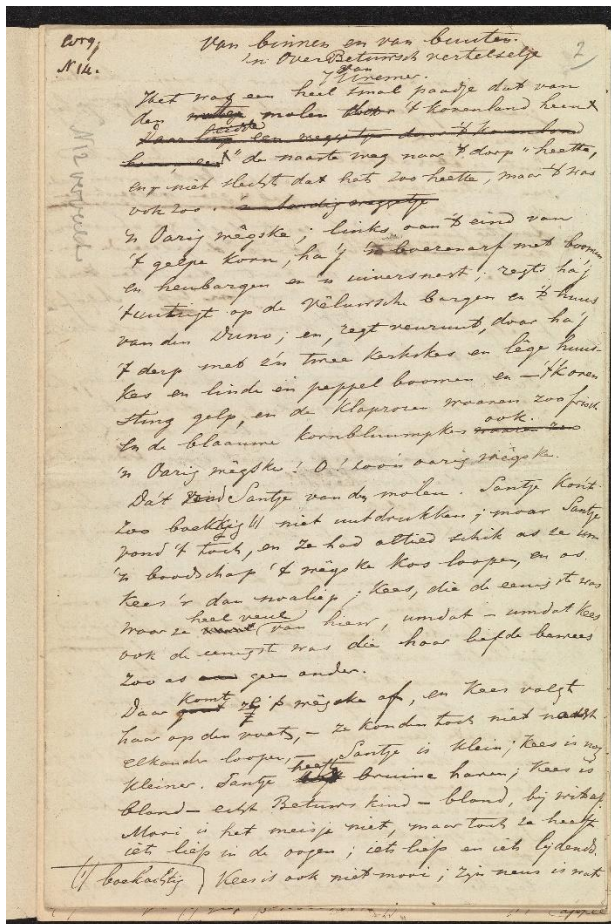 Van binnen en van buuten.
'n Over Betuwsch vertelselje
van
J Cremer.
2
N 14.
Het was een heel smal paadje dat van
den molen door 't korenland heen
"de naaste weg naar 't dorp" heette,
en niet slecht dat hat zoo heette, maar 't was
ook zoo.
'n Oarig wêgske; links, aan 't eind van
't gelpe korn, ha'j 'n boerenarf met boomen
en heubargen en 'n uiversnest; regts ha'j
't uutzigt op de Vêluwsche bargen en 't huus
van den Duno; en, regt veuruut, door ha'j
't derp met én twee kerkskes en lêge huus-
kes en linde en peppel boomen en — 't koren
sting gelp, en de klaprozen waaren zoo frisch
En de blaauwe kornbluumpkes ook.
'n Oarig wêgske! O! zoo'n oarig wêgske.
Dát vond Santje van den molen. Santje kon 't
zoo boekig 1) niet uutdrukken; maar Santje
vond 't toch, en ze had altied schik as ze um
'n boodschap 't wêgske kos loopen, en as
Kees 'r dan noaliep; Kees, die de eenigste was
waar ze heel veul van hiew, umdat — umdat Kees
ook de eenigst was die haar liefde bewees
zoo as geen ander.
Daar komt zij 't wêgske af, en Kees volgt
haar op den voet, — ze konden toch niet naast
elkander loopen, — Santje is klein; Kees is nog
kleiner. Santje heeft bruine haren; Kees is
blond — echt Betuws kind — blond, bij wit af.
Mooi is het meisje niet, maar toch ze heeft
iets liefs in de oogen; iets liefs en iets lijdends.
Kees is ook niet mooi; zijn neus is wat
1) boekachtig